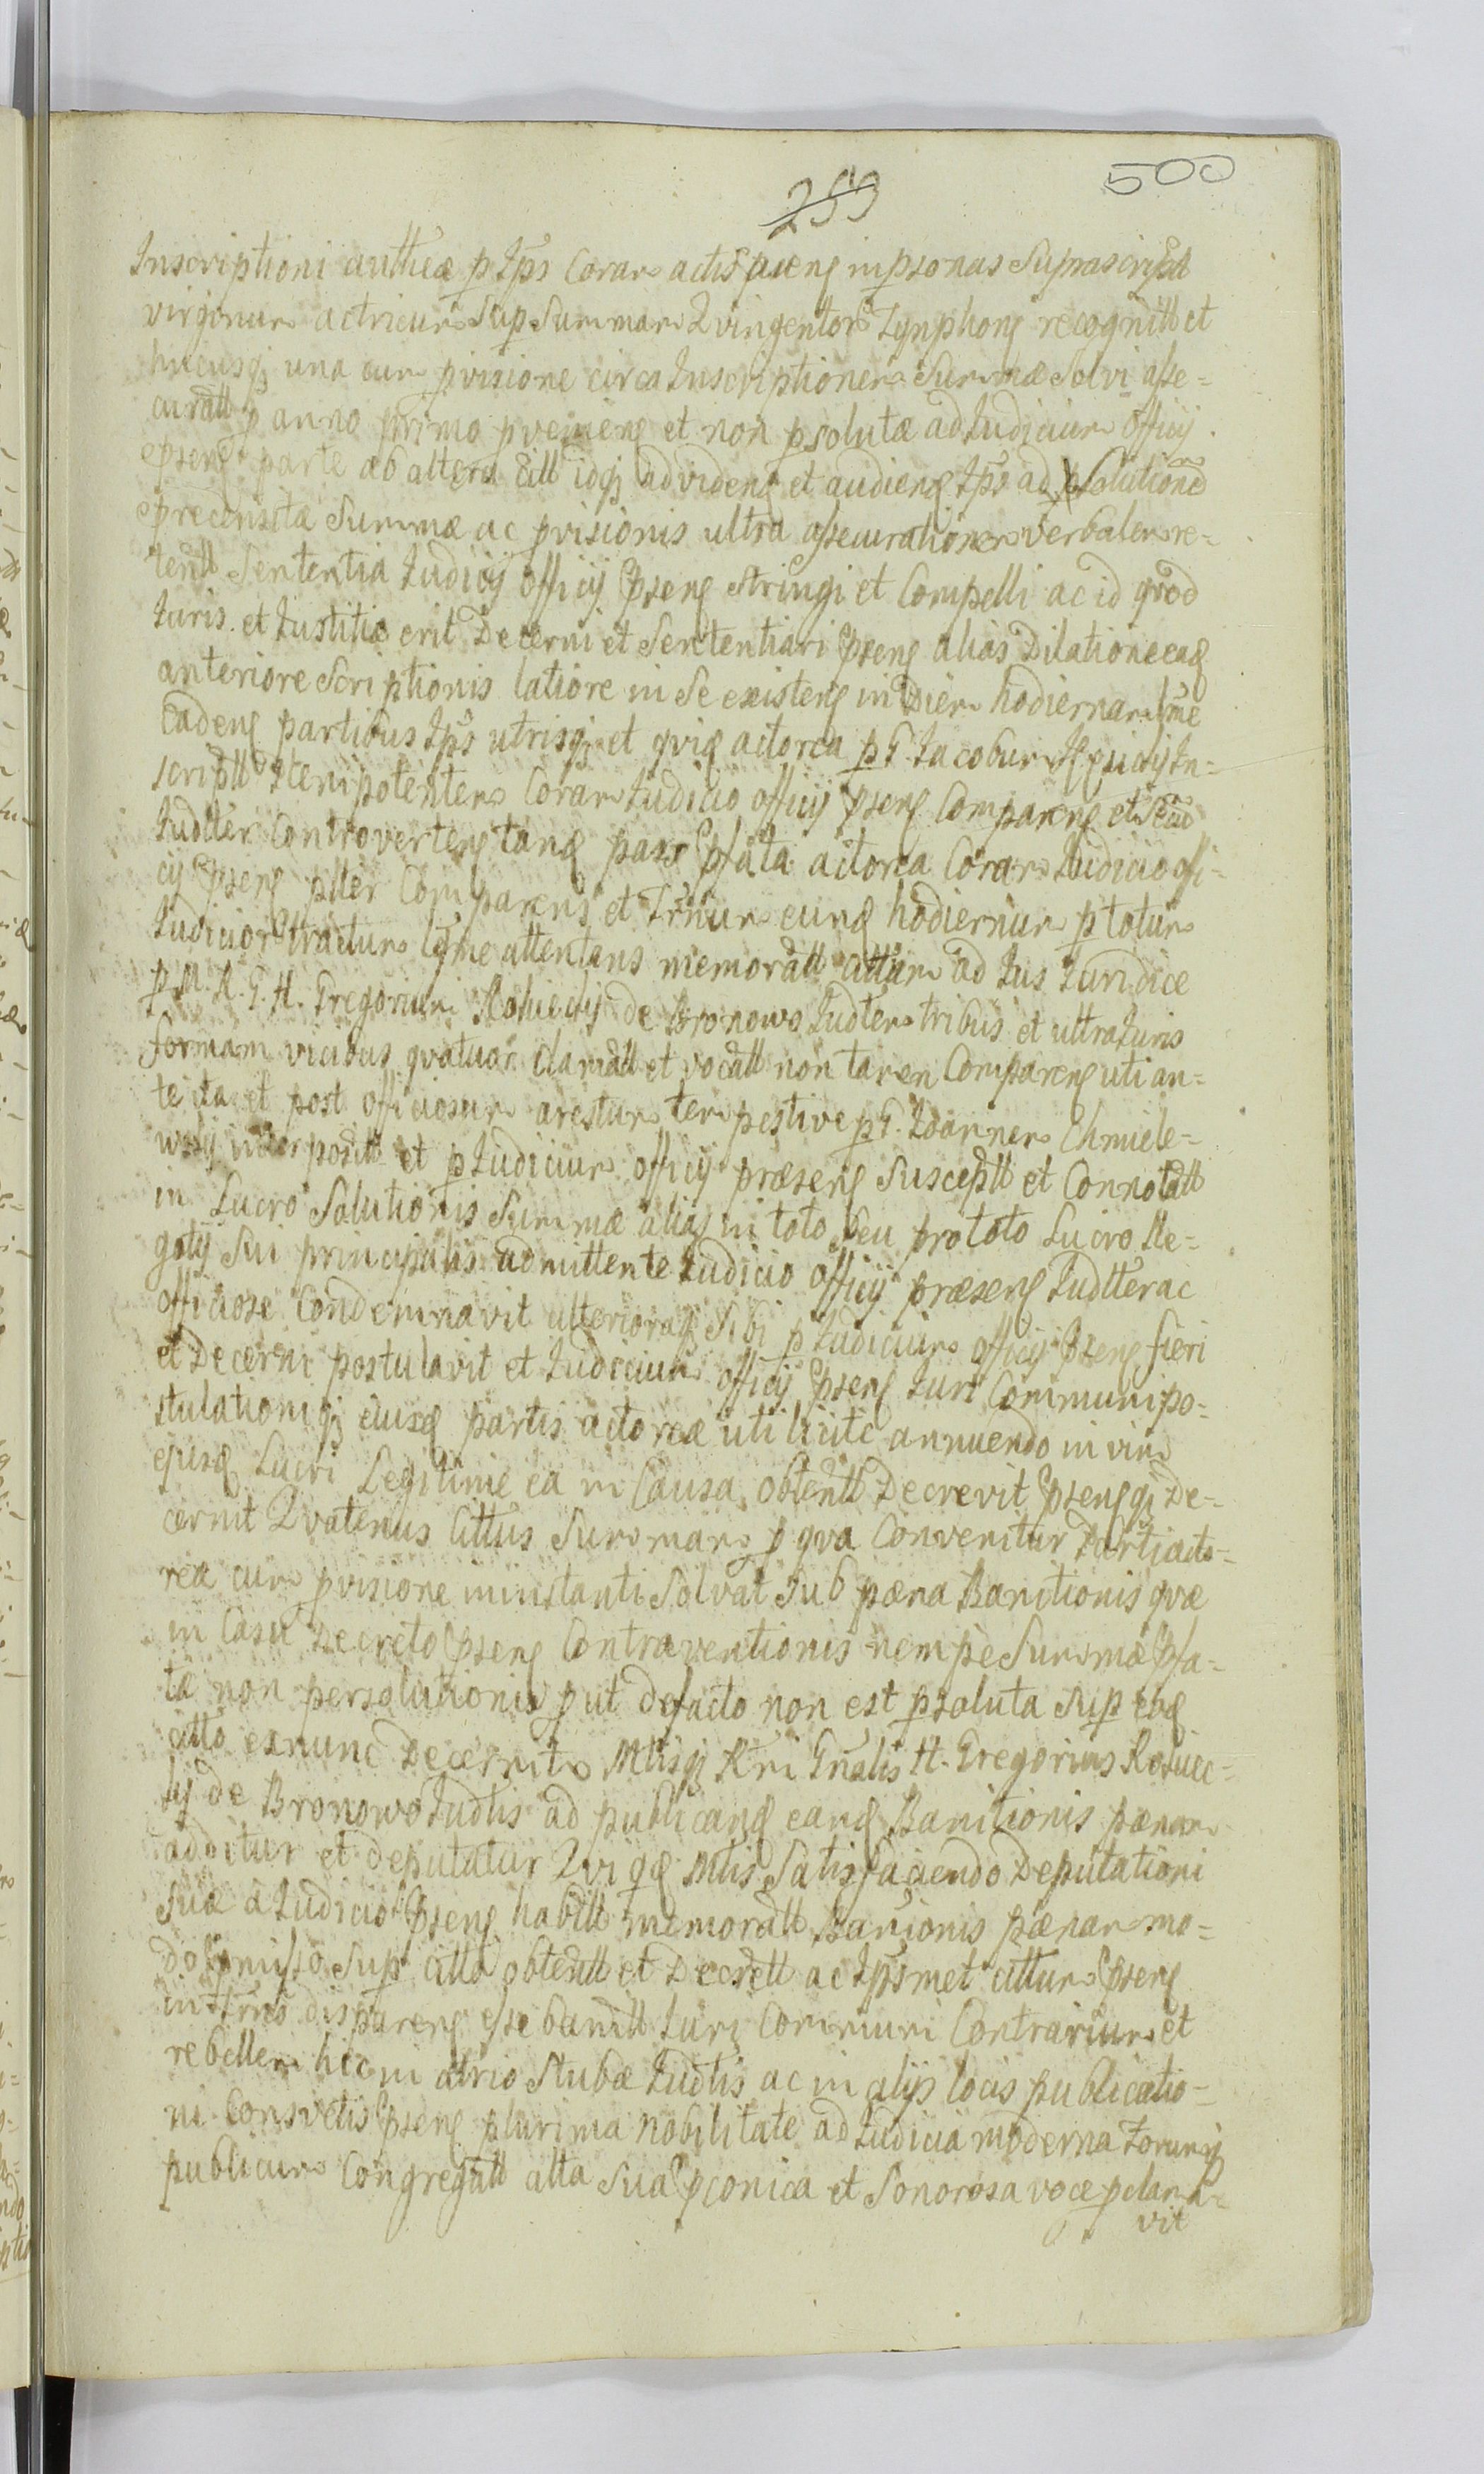 253
500
Inscriptioni authcæ p Ips Coram actis psens in psonas Suprascript
virginum actricum Sup Summam Quingentor Tynphonq recognitt et
hucusq una cum pvisione circa Inscriptionem Summæ Solvi asse=
curatt p anno primo pveniens et non psolutæ ad Judicium Officij
psens parte ab altera Citt idq ad videnq et audienq Ips ad psolutione
precensitæ Summæ ac pvisionis ultra assecurationem verbalem re=
tentt Sententia Judicij Officij psens Stringi et Compelli ac id qvod
Juris et Justitiæ erit Decerni et Sententiari psens alias Dilatione eaq
anteriore Scriptionis latiore in Se existens in Diem hodiernam lme
Cadens partibus Ips utrisq et qviq actorea p G. Jacobum In=
scriptt Plenipotentem Coram Judicio officij psens Comparens et Secum
Judtter Controvertens tanq pars pfata actorea Coram Judicio offi=
cij psens ptter Comparens et Trnum eunq hodiernum p totum
Judicior tractum lgme attentans memoratt cittum ad Jus Juridice
p M. R. G. H. Gregorium de Bronowo Judtem tribus et ultra Juris
formam vicibus qvatuor Clamatt et vocatt non tamen Comparens uti an=
te ita et post officiosum arestum tempestive p G. Joannem Chmiele=
wskij interpositt et p Judicium officij præsens Susceptt et Connotatt
in Lucro Solutionis Summæ alias in toto seu pro toto Lucro Ne=
gotij Sui principalis admittente Judicio Officij præsens Judtter ac
officiose Condemnavit ulterioraq Sibi p Judicium officij psens fieri
et Decerni postulavit et Judicium officij psens Juri Communi po=
stulationiq eiusq partis actoreæ uti licite annuendo in vim
ejusq Lucri Legitime ea in Causa obtentt Decrevit psensq De=
cernit Qvatenus Cittus Summam p qva Convenitur Parti acto=
reæ cum pvisione in instanti Solvat Sub pæna Banitionis qvæ
in Casu Decreto psens Contraventionis nempe Summæ pfa=
tæ non persolutionis put defacto non est psoluta Sup eoq
citto exnunc Decernit Mtisq Rni Gnalis H. Gregorius
de Bronowo Judtis ad publicanq eanq Banitionis pænam
additur et deputatur Qvi qd Mtis Satisfaciendo Deputationi
Suæ a Judicio psens habitt memoratt Banionis pænam mo=
do pmisso Sup citto obtentt et Decrett ac Ipsmet cittum psens
in Trno disparens esse banitt Juri Communi Contrarium et
rebellem hic in atrio Stubæ Judtis ac in alijs locis publicatio=
ni Consvetis psens plurima nobilitate ad Judicia moderna Forumq
publicum Congregatt alta Sua pconica et Sonorosa voce pclama=
vit